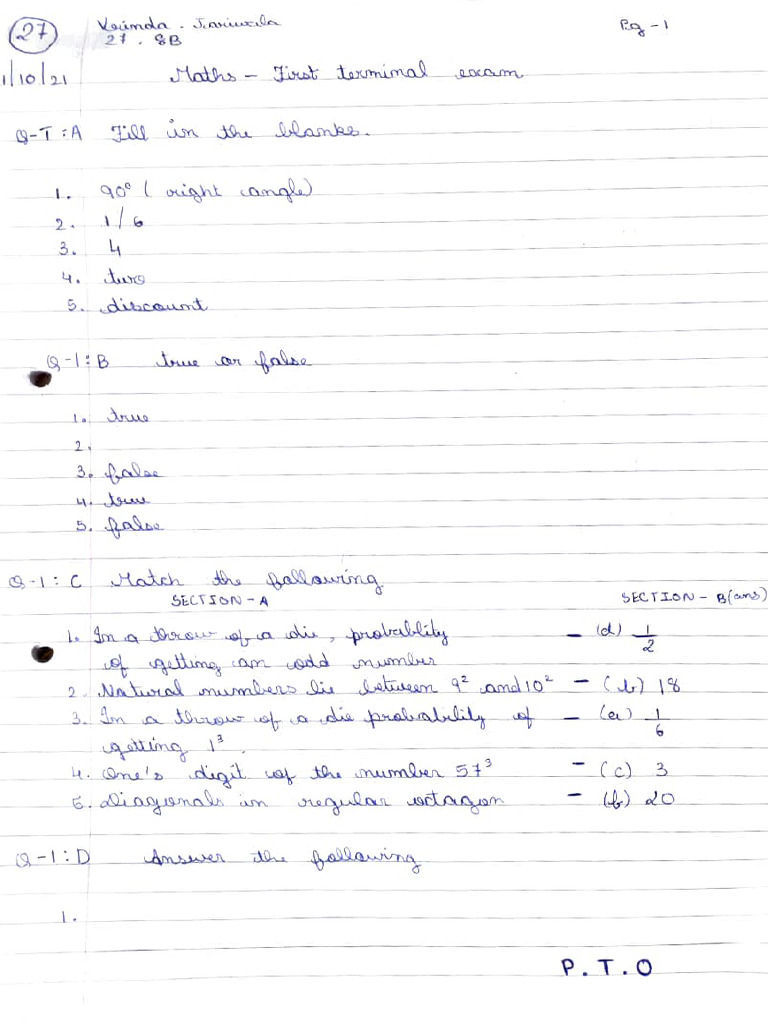 27
Pg - 1
27 . 8B
1/10/21
Maths - First terminal exam
Q-I : A Fill in the blanks.
1. 90° ( right angle)
2. 1/6
3. 4
4. two
5. discount
Q-1 : B true or false
1. true
2.
3. false
4. true
5. false
Q-1 : C Match the following
SECTION - A SECTION - B (ans)
1. In a throw of a die, probability - (d) 1/2
of getting an odd number
2. Natural numbers lie between 9² and 10² - (b) 18
3. In a throw of a die probability of - (a) 1/6
getting 1³.
4. One's digit of the number 57³ - (c) 3
5. Diagonals in regular octagon - 20
Q-1 : D Answer the following
1.
P. T. O